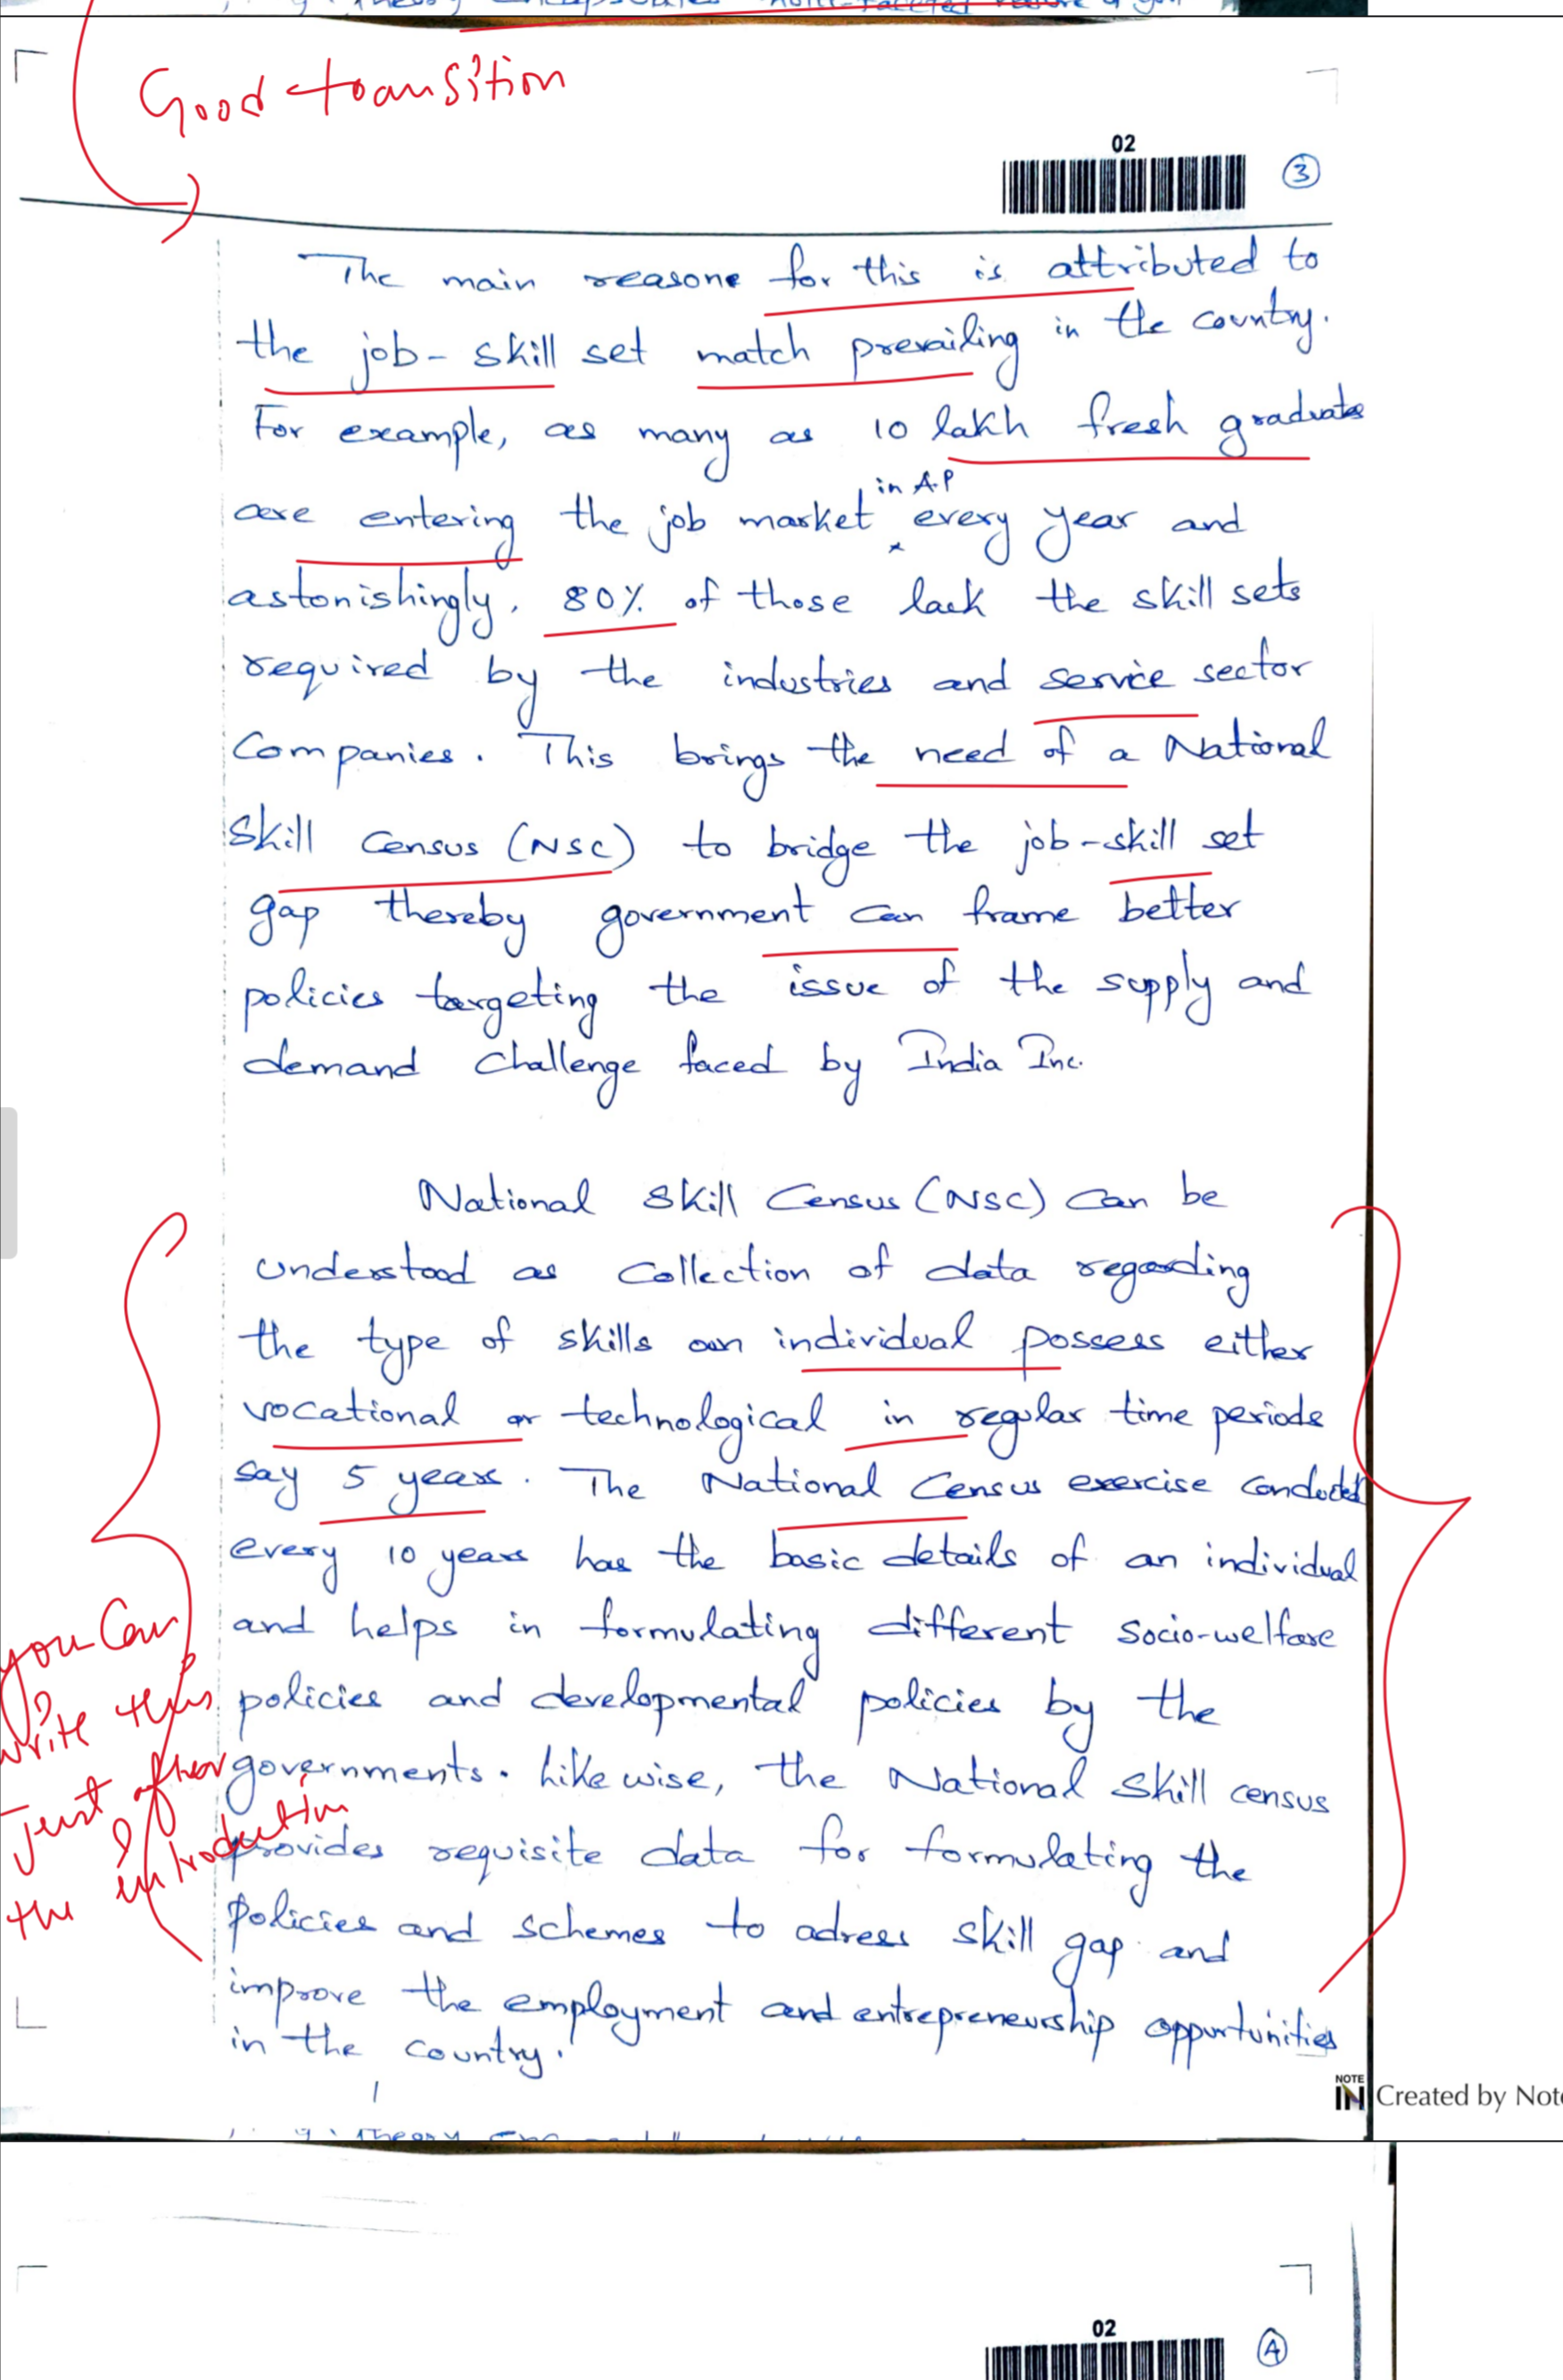 Good transition
02
3
The main reasons for this is attributed to
the job-skill set match prevailing in the country.
For example, as many as 10 lakh fresh graduates
are entering the job market in A.P every year and
astonishingly, 80% of those lack the skill sets
required by the industries and service sector
Companies. This brings the need of a National
Skill Census (NSC) to bridge the job-skill set
gap thereby government can frame better
policies targeting the issue of the supply and
demand challenge faced by India Inc.
National Skill Census (NSC) Can be
understood as collection of data regarding
the type of skills an individual possess either
vocational or technological in regular time periods
say 5 years. The National Census exercise conducted
every 10 years has the basic details of an individual
and helps in formulating different socio-welfare
policies and developmental policies by the
governments. Likewise, the National Skill census
provides requisite data for formulating the
policies and schemes to adress skill gap and
improve the employment and entrepreneurship opportunities
in the country.
you Can
write this
just after
the introduction
NOTE
IN Created by Not
02
4